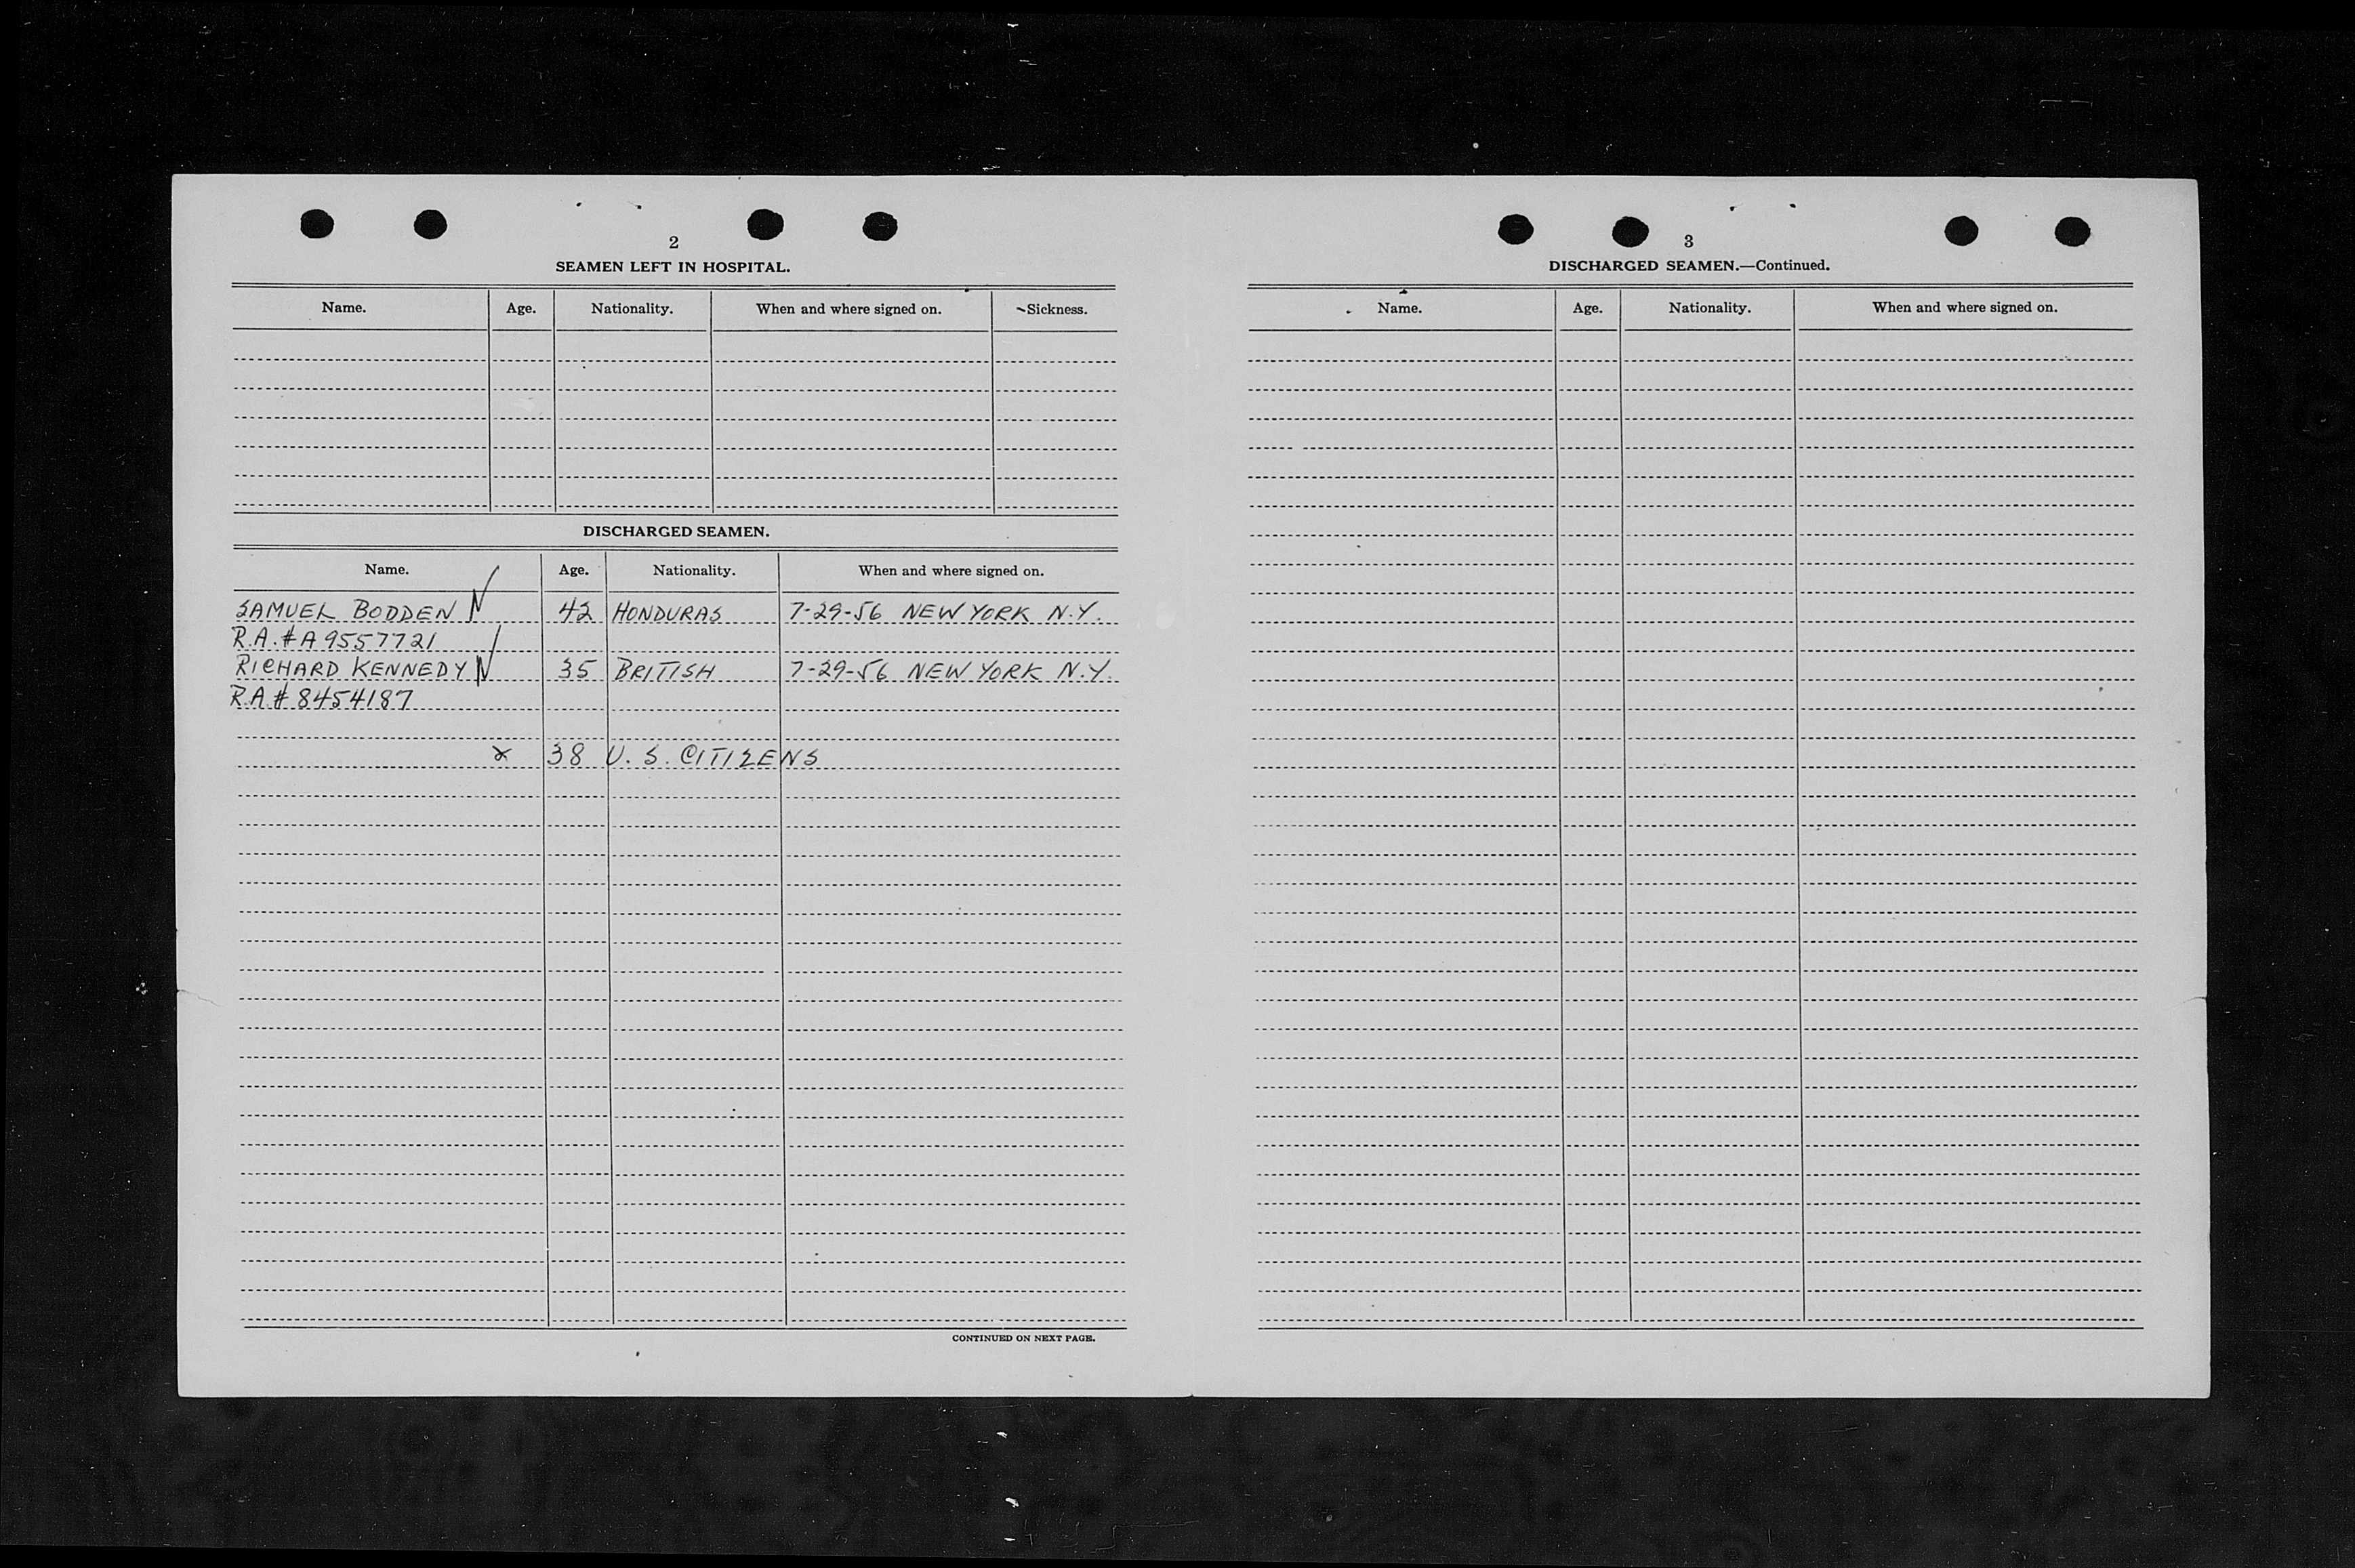 2
SEAMEN LEFT IN HOSPITAL.
Name. Age. Nationality. When and where signed on. Sickness.
DISCHARGED SEAMEN.
Name. Age. Nationality. When and where signed on.
SAMUEL BODDEN N 42 HONDURAS 7-29-56 NEW YORK N.Y.
R.A.#A9557721
RICHARD KENNEDY N 35 BRITISH 7-29-56 NEW YORK N.Y.
R.A.#8454187
x 38 U. S. CITIZENS
CONTINUED ON NEXT PAGE.
3
DISCHARGED SEAMEN.—Continued.
Name. Age. Nationality. When and where signed on.